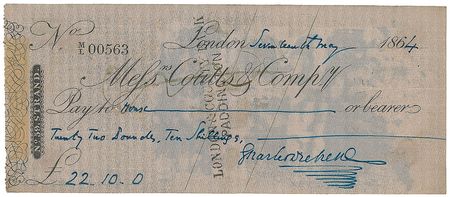 No M/L 00563 London Seventeenth May 1864.
Messrs Coutts & Compy
Pay to House or bearer
Twenty Two Pounds, Ten Shillings,
Charles Dickens
£ 22.10.0
No 59 STRAND.
LONDON & COUNTY BANK
PADDINGTON